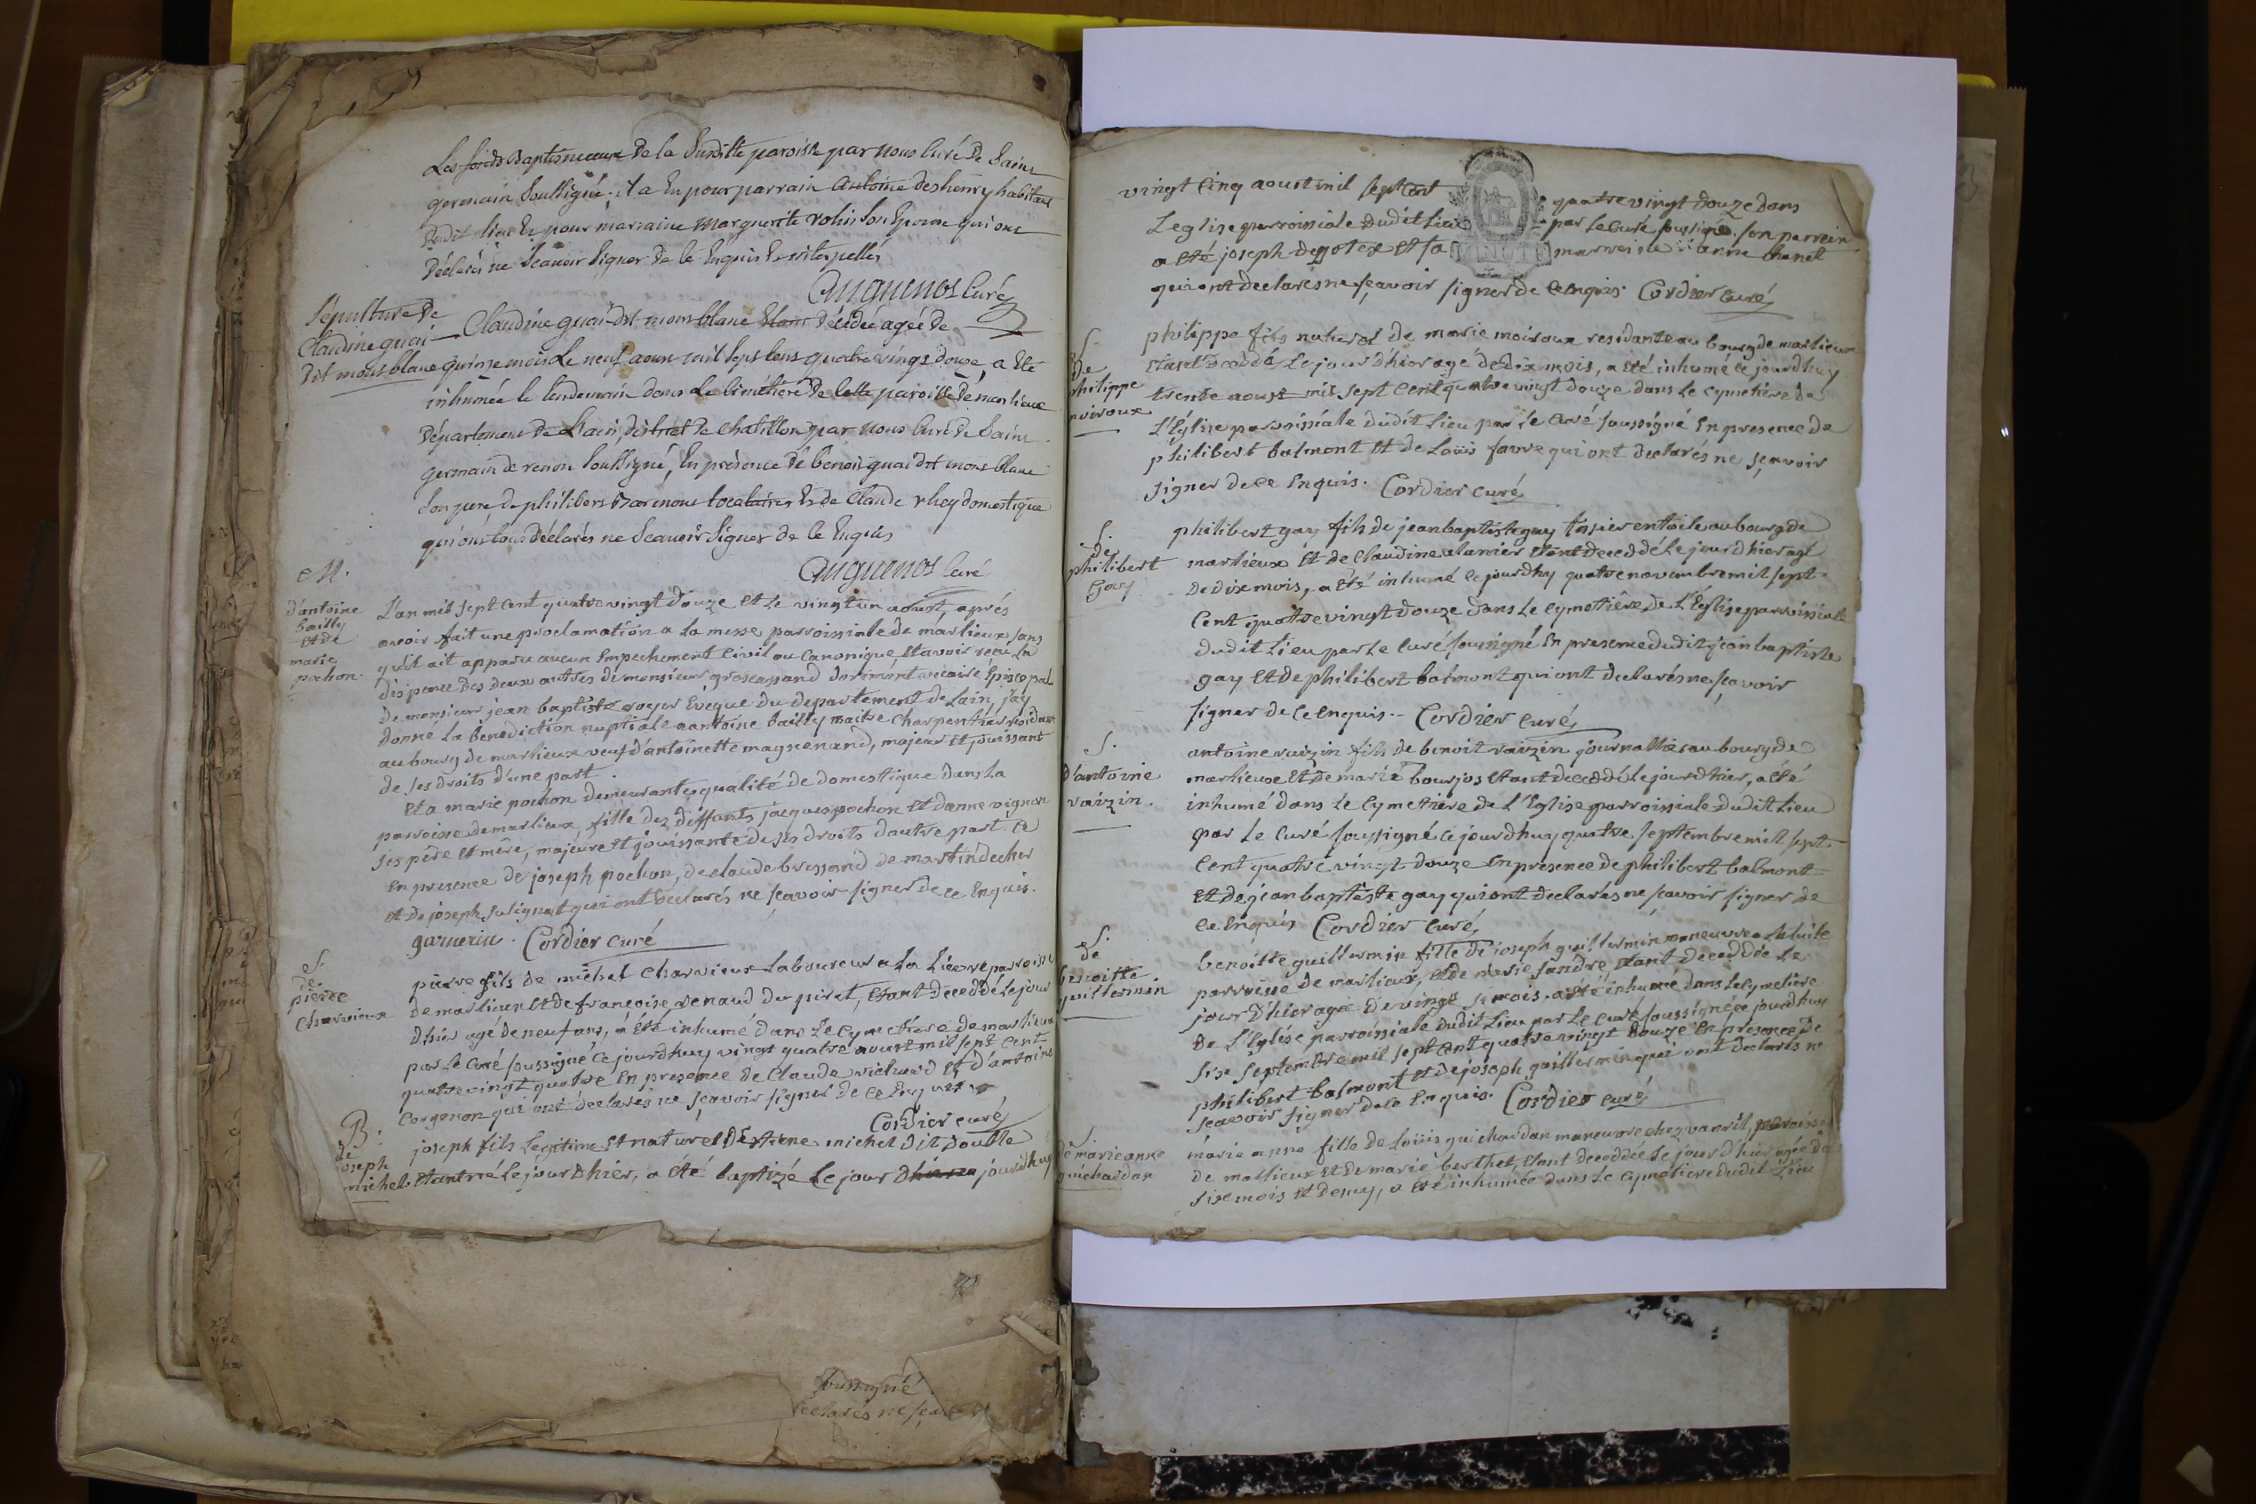 Les fonds Baptismaux De la Susditte paroisse par nous Curé De Saint
germain Soussigné; il a Eu pour parrain antoine deshenry habitant
Dudit lieu Et pour marraine marguerite rolin Son Epouse qui ont
Déclaré ne Scavoir Signer De Ce Enquis Et interpellés
Anguenot Curé
Sépulture De
Claudine guai
Dit mont blanc
Claudine guai Dit mont blanc Etant Décédée agée De
quinze mois Le neuf aoust mil Sept Cent quatre vingt douze, a Eté
inhumée le lendemain dans Le Cimétiére De Cette paroisse De marlieux
Département De L'ain, district De Chatillon par nous Curé De Saint
germain de renon Soussigné, En présence De benoit guai dit mont blanc
Son pere de philibert Locataires Et De Claude domestique
qui ont tous Déclarés ne Scavoir Signer De Ce Enquis
Anguenot Curé
M.
d'antoine
bailly
et de
marie
pochon.
L'an mil sept cent quatre vingt Douze et Le vingt un aoust, aprés
avoir fait une proclamation a La messe parroissiale de marlieux sans
qu'il ait apparu aucun Empechement Civil ou Canonique, Et avoir reçu La
dispence Des deux autres de monsieur groscassand Dorimont vicaire Episcopal
de monsieur jean baptiste royer Evêque du departement de Lain, j'ay
Donné La benediction nuptiale a antoine bailly maitre charpentier residant
au bourg de marlieux veuf d'antoinette magnenand, majeur Et jouissant
de ses droits d'une part.
Et a marie pochon demeurante qualité de domestique dans La
parroisse de marlieux, fille des deffunts jacques pochon Et danne vignon
ses père Et mère, majeure Et jouissante de ses droits dautre part. Ce
En presence de joseph pochon, de claude bressand de martin decher
Et de joseph Salignat qui ont declarés ne sçavoir signer de ce Enquis.
garnerin. Cordier curé
S.
de
pierre
Charvieux
pierre fils de michel Charvieux Laboureur a La Lievre parroisse
de marlieux Et de françoise renaud du piret, Etant Decedé Le jour
d'hier agé de neuf ans, a Eté inhumé dans Le Cymetiere de marlieux
par Le Curé soussigné Ce jourdhuy vingt quatre aoust mil sept Cent
quatre vingt quatre En presence de Claude richard Et d'antoine
Corgenon qui ont declarés ne sçavoir signer de Ce Enquis.
Cordier curé
B.
de
joseph
michel.
joseph fils Legitime Et naturel D'Etiene michel dit Double
Etant né Le jour D'hier, a été baptizé Le jour jourdhuy
soussigné
declarés ne sçav
vingt cinq aoust mil sept cent quatre vingt Douze dans
L'eglise parroissiale Dudit Lieu par Le Curé soussigné. son parrein
a eté joseph depotex et sa marreine anne
qui ont declarés ne sçavoir signer de ce enquis. Cordier curé
S.
De
philippe
moiroux
philippe fils naturel de marie moiroux residante au bourg de marlieux
Etant Decedé Le jour d'hier agé de Dix mois, a été inhumé ce jourdhuy
trente aoust mil sept cent quatre vingt douze dans Le cymetiere de
L'Eglise parroissiale dudit Lieu par Le Curé soussigné En presence de
philibert balmont Et de Louis favre qui ont declarés ne sçavoir
signer de ce Enquis. Cordier curé
S.
de
philibert
Gay
philibert gay fils de jean baptiste gay tissier en toile au bourg de
marlieux Et de Claudine alanier Etant decedé Le jour d'hier agé
de dix mois, a été inhumé ce jourdhuy quatre novembre mil sept
Cent quatre vingt Douze Dans Le Cymetière de L'Eglise parroissiale
dudit Lieu par Le Curé soussigné En presence dudit jean baptiste
gay Et de philibert balmont qui ont declarés ne sçavoir
signer de Ce Enquis. - Cordier curé
S.
d'antoine
vaizin.
antoine vaizin fils de benoit vaizin journallier au bourg de
marlieux Et De marie bourjos Etant decedé Le jour d'hier, a été
inhumé dans Le Cymetiere de L'Eglise parroissiale dudit Lieu
par Le Curé soussigné ce jourdhuy quatre septembre mill sept
Cent quatre vingt Douze En presence de philibert balmont
Et de jean baptiste gay qui ont declarés ne sçavoir signer de
ce Enquis Cordier curé
S.
de
benoitte
guillermin
benoitte guillermin fille de joseph guillermin maneuvre
parroisse de marlieux, Et de marie sandre Etant Decedée Le
jour D'hier agée De vingt mois. a été inhumé dans Le Cymetiere
de L'Eglise parroissiale Dudit Lieu par Le Curé soussigné ce jourdhuy
six septembre mil sept Cent quatre vingt Douze En presence De
philibert balmont Et de joseph guillermin qui ont declarés ne
sçavoir signer de ce Enquis. Cordier curé
S.
de marie anne
guichardan
marie anne fille de Louis guichardan maneuvre chez vaaril parroisse
de marlieux Et De marie berthet, Etant decedée Le jour D'hier agée De
six mois Et Demy, a été inhumée dans Le Cymetiere dudit Lieu